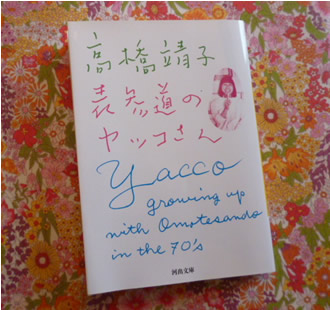 高橋靖子
表参道の
ヤッコさん
yacco
growing up
with Omotesando
in the 70's
河出文庫